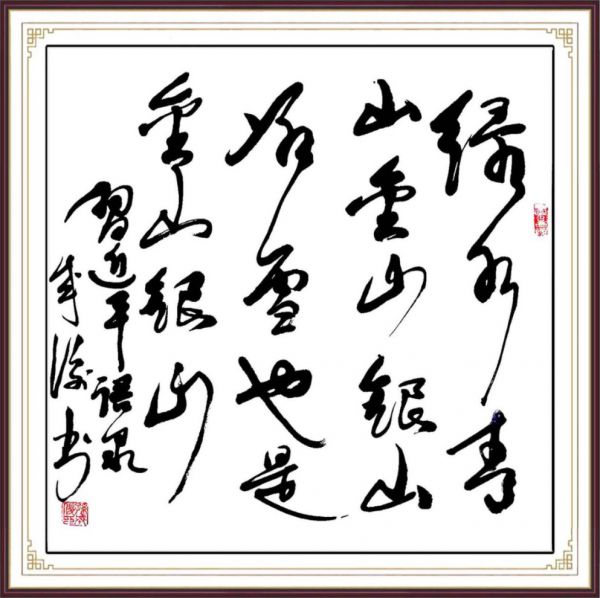 绿水青
山金山银山
冰雪也是
金山银山
習近平语录
成书